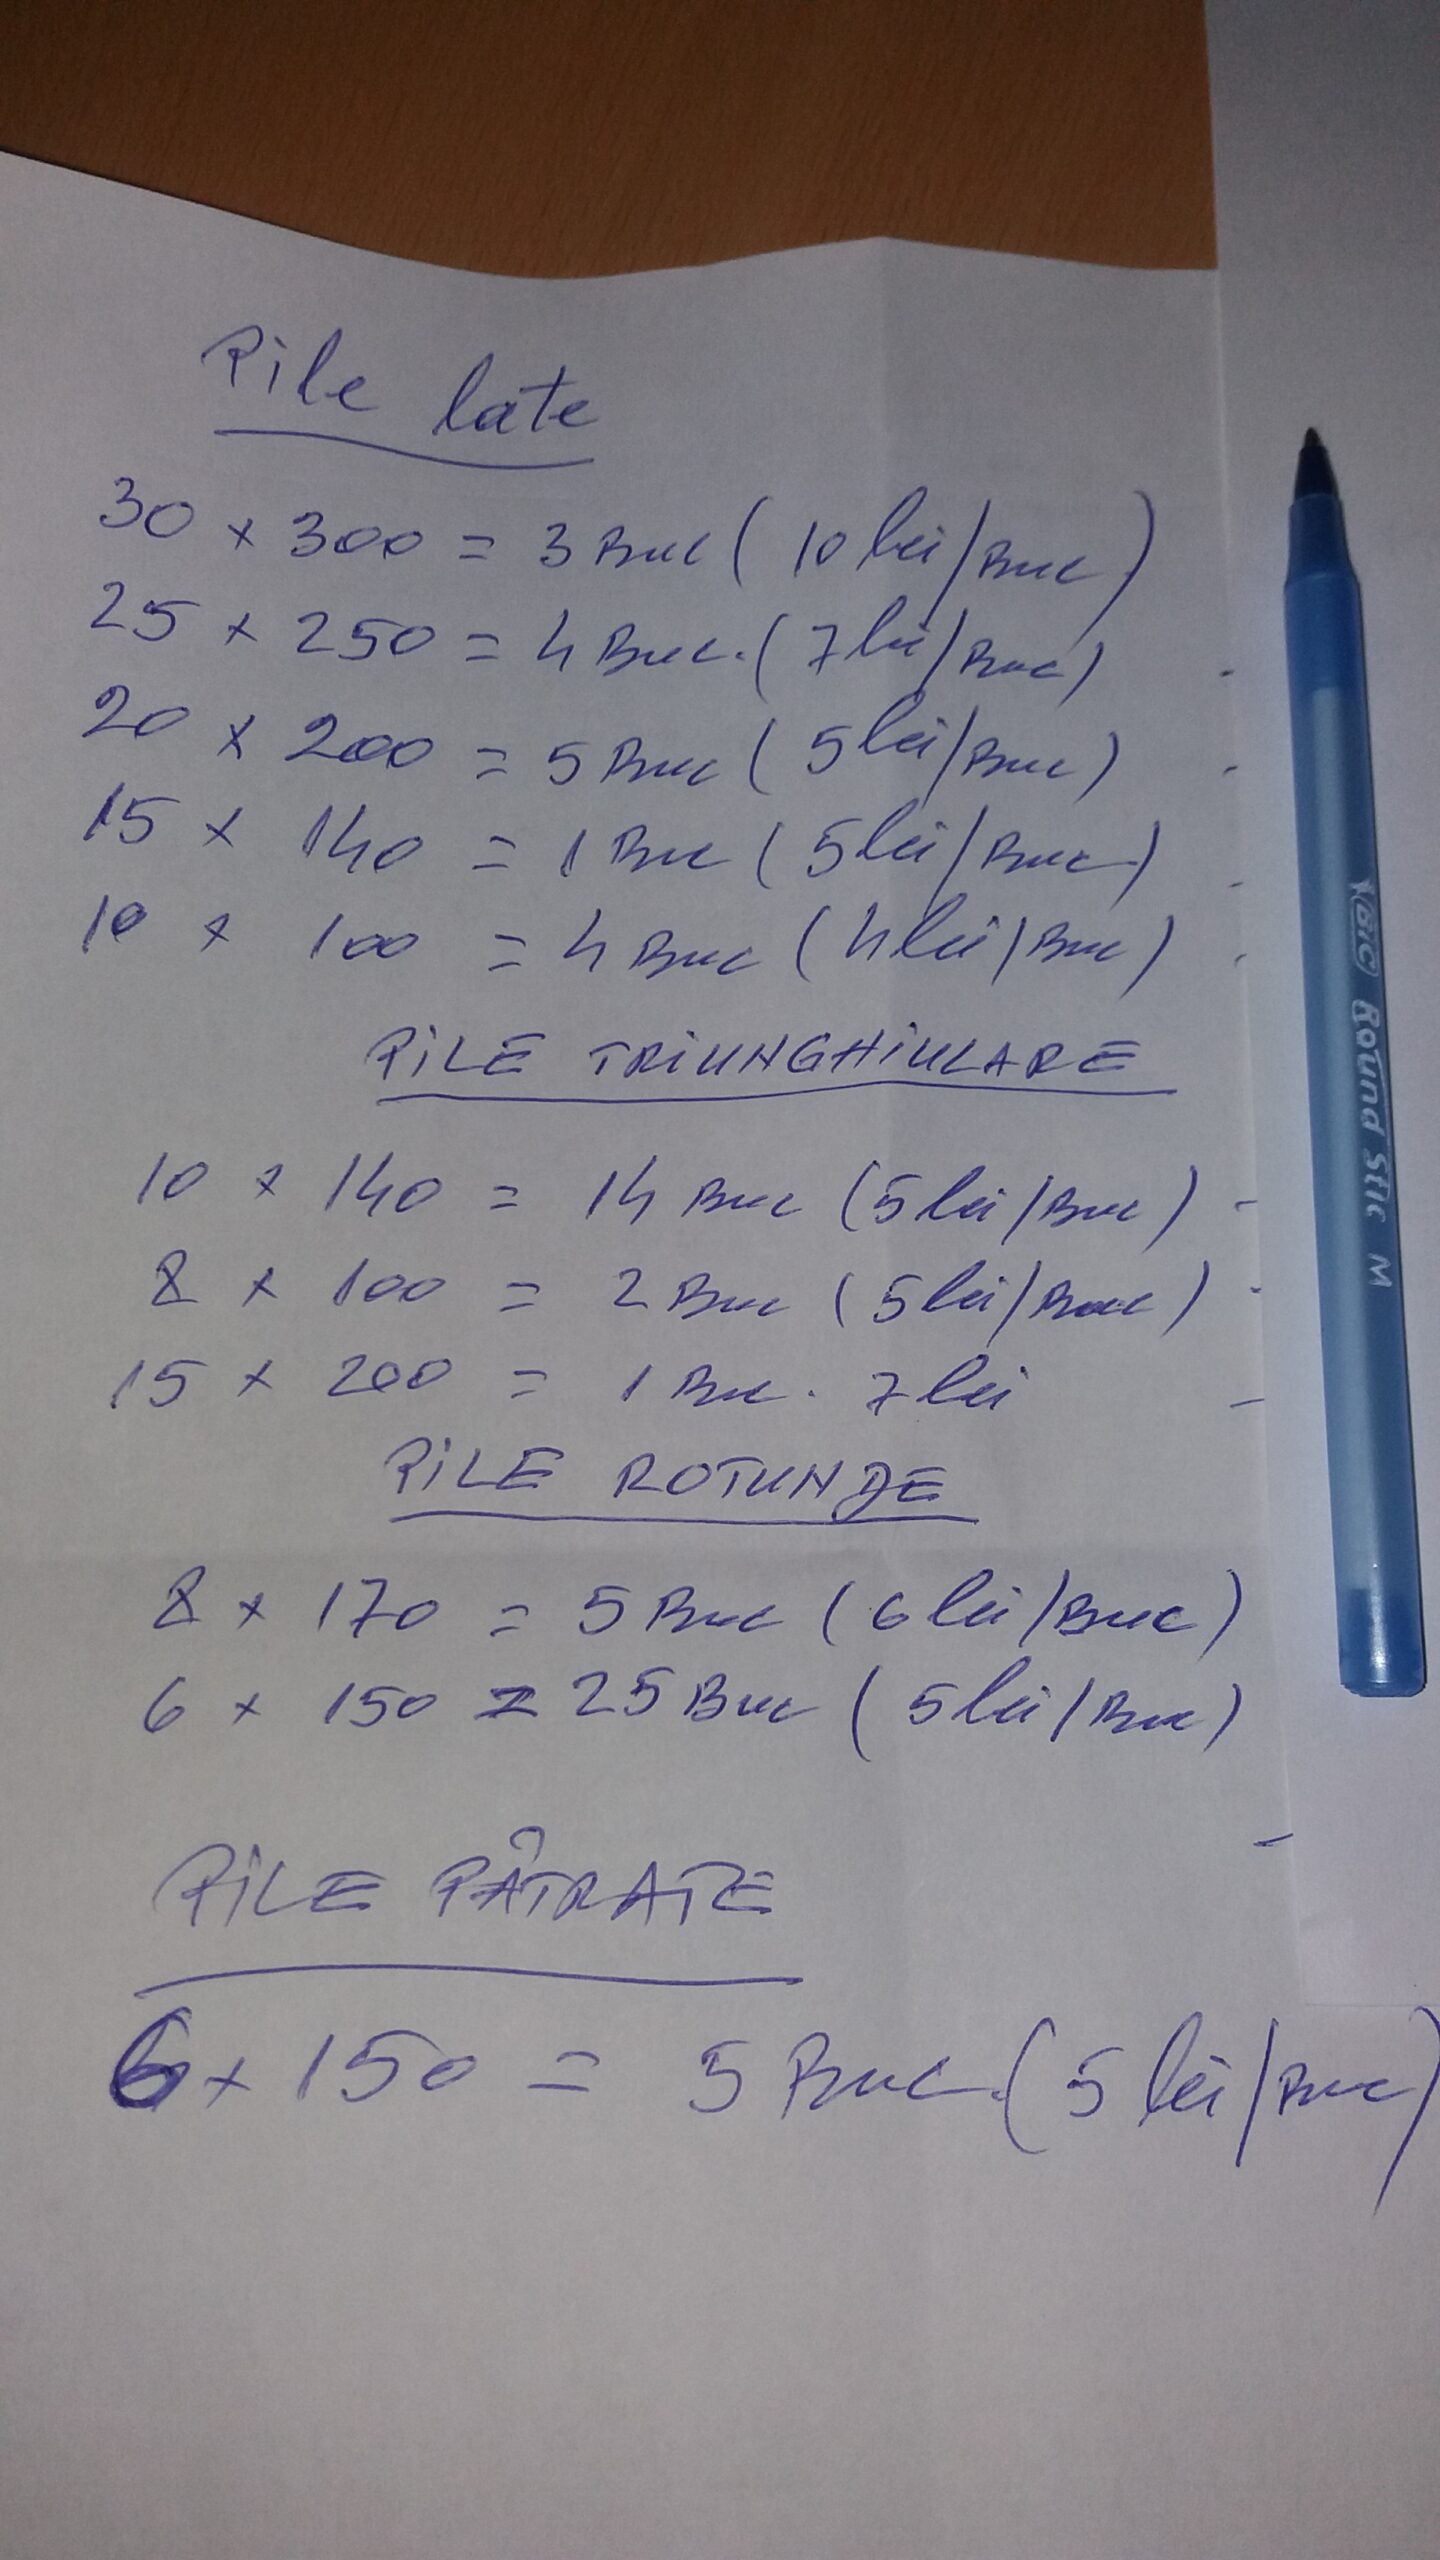 Pile late
30 x 300 = 3 Buc ( 10 lei/Buc )
25 x 250 = 4 Buc. ( 7 lei/Buc )
20 x 200 = 5 Buc ( 5 lei/Buc )
15 x 140 = 1 Buc ( 5 lei/Buc )
10 x 100 = 4 Buc ( 4 lei/Buc )
PiLE TRiUNGHiULARE
10 x 140 = 14 Buc ( 5 lei/Buc ) -
8 x 100 = 2 Buc ( 5 lei/Buc )
15 x 200 = 1 Buc. 7 lei -
PiLE ROTUNDE
8 x 170 = 5 Buc ( 6 lei/Buc )
6 x 150 = 25 Buc ( 5 lei/Buc )
PiLE PĂTRATE
6 x 150 = 5 Buc. ( 5 lei/Buc )
BIC Round Stic M